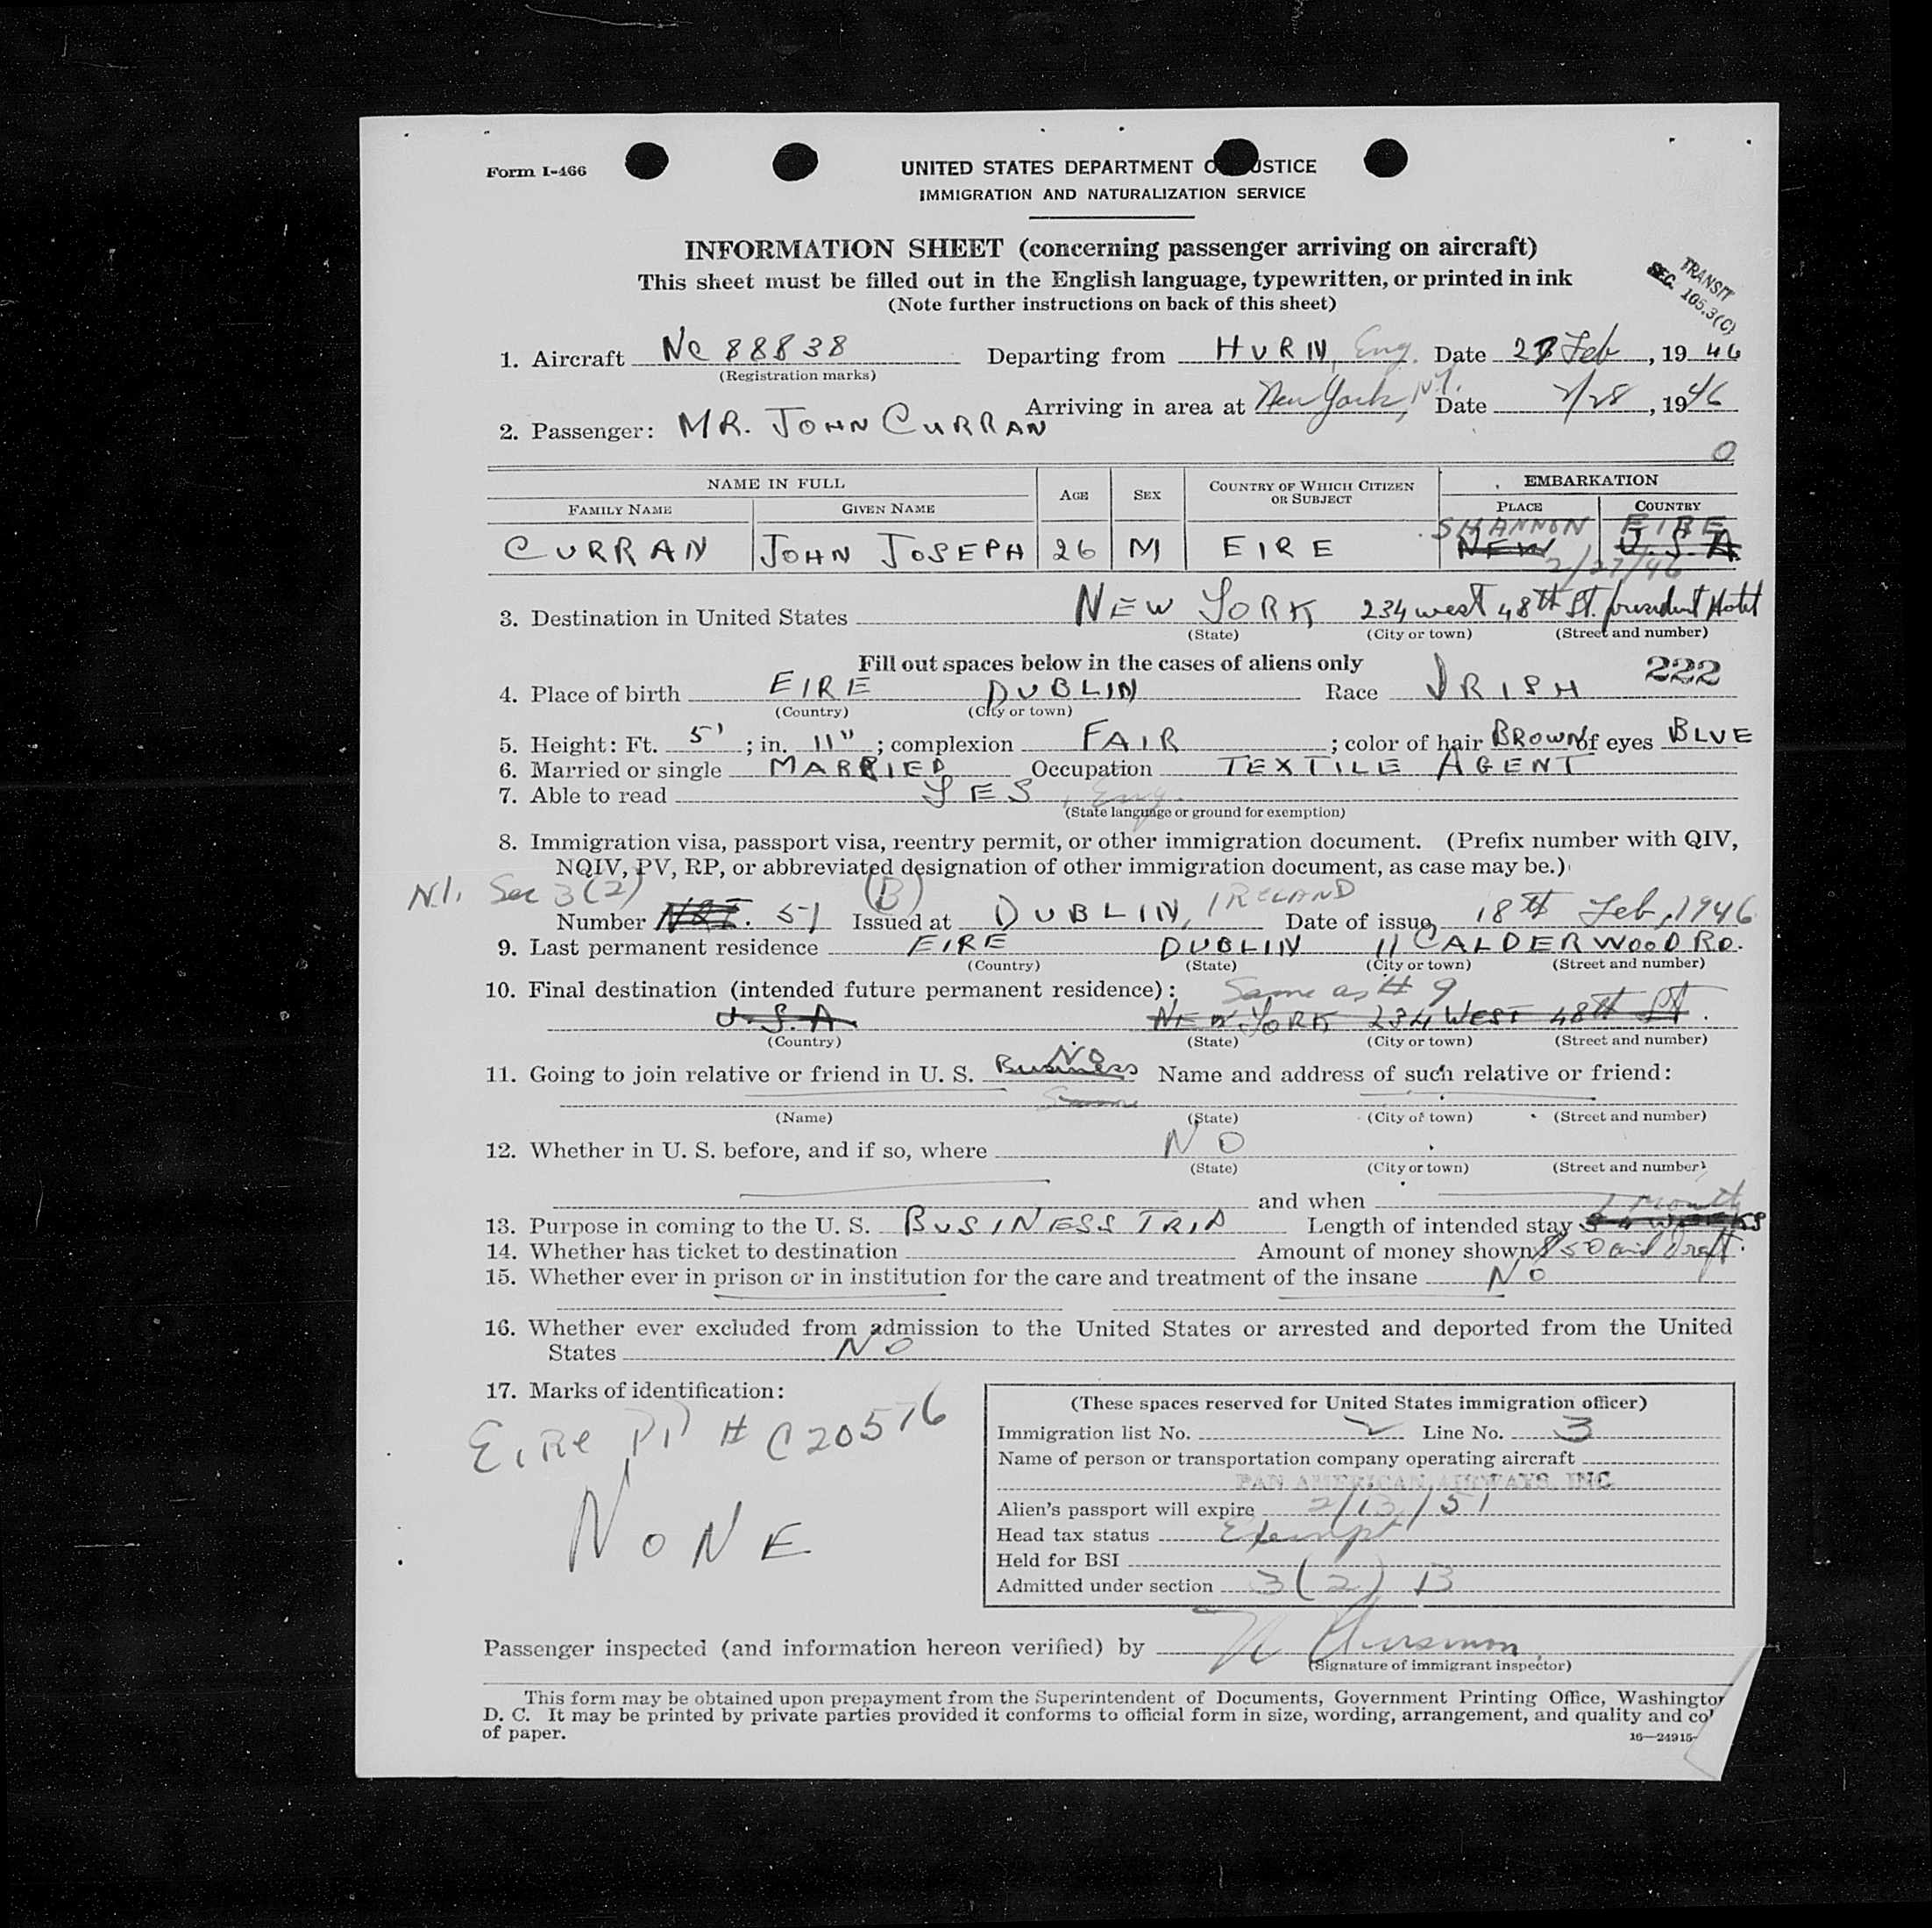 Form I-466
UNITED STATES DEPARTMENT O USTICE
IMMIGRATION AND NATURALIZATION SERVICE
INFORMATION SHEET (concerning passenger arriving on aircraft)
This sheet must be filled out in the English language, typewritten, or printed in ink
(Note further instructions on back of this sheet)
TRANSIT
SEC. 105.3(C)
1. Aircraft Nc 88838 Departing from HURN, Eng. Date 27 Feb, 1946
(Registration marks)
Arriving in area at New York, N.Y. Date 2/28, 1946
2. Passenger: MR. JOHN CURRAN
0
NAME IN FULL AGE SEX COUNTRY OF WHICH CITIZEN OR SUBJECT EMBARKATION
FAMILY NAME GIVEN NAME PLACE COUNTRY
SHANNON EIRE
CURRAN JOHN JOSEPH 26 M EIRE NEW U.S.A
2/27/46
3. Destination in United States NEW YORK 234 west 48th St. president Hotel
(State) (City or town) (Street and number)
Fill out spaces below in the cases of aliens only
222
4. Place of birth EIRE DUBLIN Race IRISH
(Country) (City or town)
5. Height: Ft. 5'; in. 11"; complexion FAIR; color of hair BROWN of eyes BLUE
6. Married or single MARRIED Occupation TEXTILE AGENT
7. Able to read YES, Eng.
(State language or ground for exemption)
8. Immigration visa, passport visa, reentry permit, or other immigration document. (Prefix number with QIV,
NQIV, PV, RP, or abbreviated designation of other immigration document, as case may be.)
N.I. Sec 3(2) (B)
Number 51 Issued at DUBLIN, IRELAND Date of issue 18th Feb, 1946
9. Last permanent residence EIRE DUBLIN 11 CALDERWOOD RD.
(Country) (State) (City or town) (Street and number)
10. Final destination (intended future permanent residence): Same as # 9
U.S.A NEW YORK 234 WEST 48th St.
(Country) (State) (City or town) (Street and number)
11. Going to join relative or friend in U. S. Business No Name and address of such relative or friend:
(Name) (State) (City or town) (Street and number)
12. Whether in U. S. before, and if so, where NO
(State) (City or town) (Street and number)
and when
1 Month
13. Purpose in coming to the U. S. BUSINESS TRIP Length of intended stay WEEKS
14. Whether has ticket to destination Amount of money shown $50 and draft.
15. Whether ever in prison or in institution for the care and treatment of the insane No
16. Whether ever excluded from admission to the United States or arrested and deported from the United
States NO
17. Marks of identification:
EIRE PP # C20576
NONE
(These spaces reserved for United States immigration officer)
Immigration list No. 2 Line No. 3
Name of person or transportation company operating aircraft
PAN AMERICAN AIRWAYS, INC
Alien's passport will expire 2/13/51
Head tax status Exempt
Held for BSI
Admitted under section 3(2) B
Passenger inspected (and information hereon verified) by
(Signature of immigrant inspector)
This form may be obtained upon prepayment from the Superintendent of Documents, Government Printing Office, Washington
D. C. It may be printed by private parties provided it conforms to official form in size, wording, arrangement, and quality and co
of paper.
16—24915-